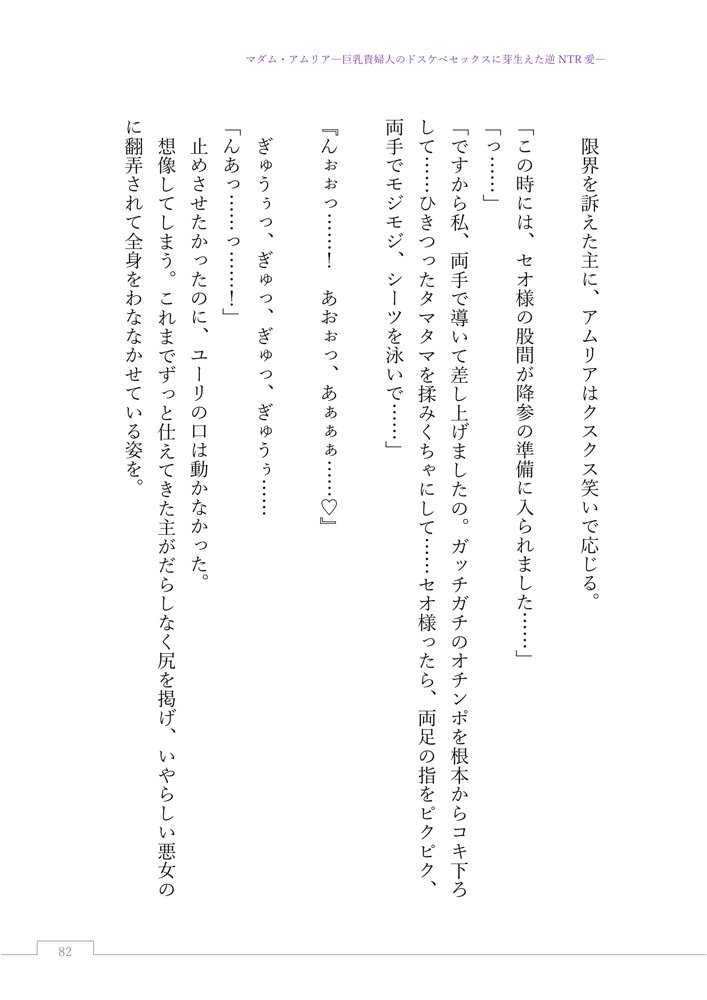 マダム・アムリア―巨乳貴婦人のドスケベセックスに芽生えた逆NTR愛―
限界を訴えた主に、アムリアはクスクス笑いで応じる。
「この時には、セオ様の股間が降参の準備に入られました……」
「っ……」
「ですから私、両手で導いて差し上げましたの。ガッチガチのオチンポを根本からコキ下ろ
して……ひきつったタマタマを揉みくちゃにして……セオ様ったら、両足の指をピクピク、
両手でモジモジ、シーツを泳いで……」
『んぉぉっ……！　あおぉっ、あぁぁぁ……♡』
ぎゅうぅっ、ぎゅっ、ぎゅっ、ぎゅうぅ……
「んあっ……っ……！」
止めさせたかったのに、ユーリの口は動かなかった。
想像してしまう。これまでずっと仕えてきた主がだらしなく尻を掲げ、いやらしい悪女の
に翻弄されて全身をわななかせている姿を。
82